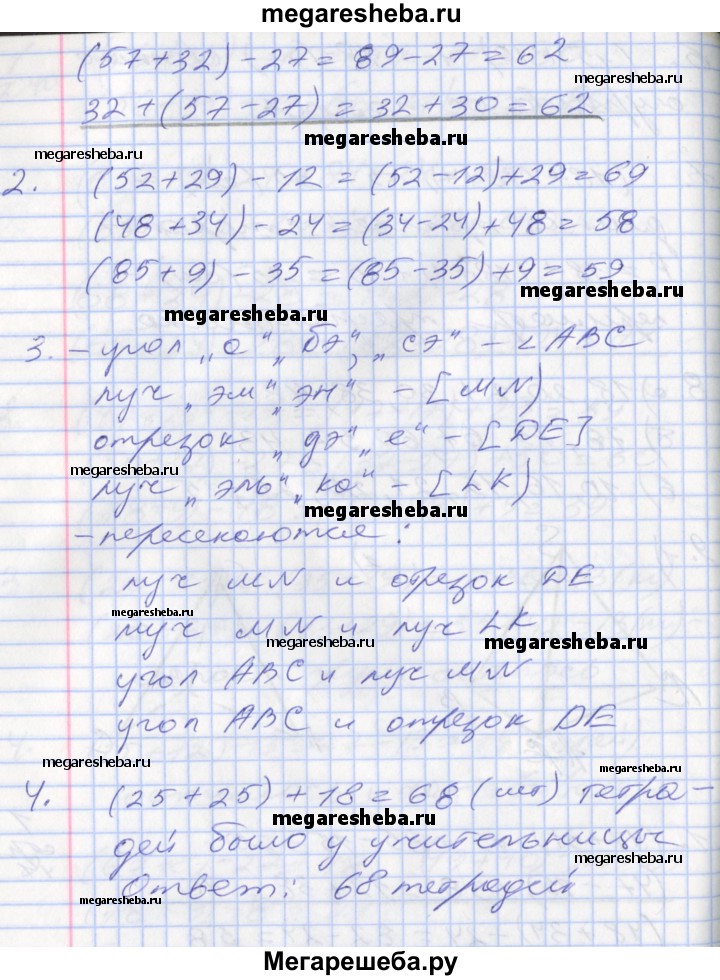 megaresheba.ru
(57+32) - 27 = 89 - 27 = 62
megaresheba.ru
32 + (57 - 27) = 32 + 30 = 62
megaresheba.ru
megaresheba.ru
2. (52 + 29) - 12 = (52 - 12) + 29 = 69
(48 + 34) - 24 = (34 - 24) + 48 = 58
(85 + 9) - 35 = (85 - 35) + 9 = 59
megaresheba.ru
megaresheba.ru
3. - угол „а“ „бэ“, „сэ“ - ∠ABC
луч „эм“ „эн“ - [MN)
отрезок „дэ“ „е“ - [DE]
megaresheba.ru
луч „эль“ „ка“ - [LK)
megaresheba.ru
- пересекаются:
луч MN и отрезок DE
megaresheba.ru
луч MN и луч LK
megaresheba.ru
угол ABC и луч MN
угол ABC и отрезок DE
megaresheba.ru
megaresheba.ru
4. (25 + 25) + 18 = 68 (шт) тетра-
megaresheba.ru
дей было у учительницы
megaresheba.ru
Ответ: 68 тетрадей
megaresheba.ru
Мегарешеба.ру